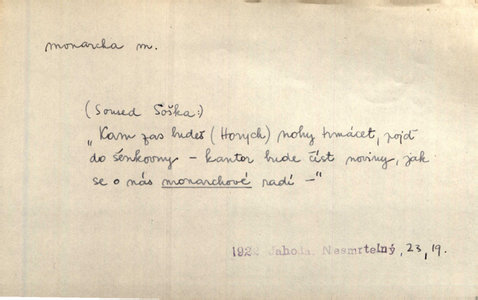 monarcha m.
(Soused Soška:)
„Kam zas budeš (Horych) nohy trmácet, pojď
do šenkovny – kantor bude číst noviny, jak
se o nás monarchové radí –“
1922 Jahoda, Nesmrtelný, 23, 19.